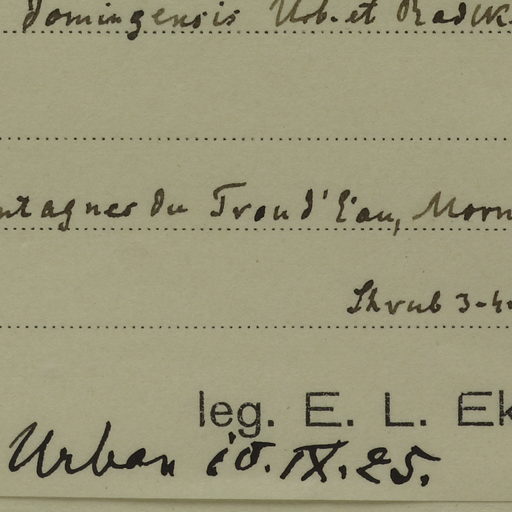 domingensis Urb. et Radlk
ntagnes du Trou d'Eau, Morn
Shrub 3-4
leg. E. L. Ek
Urban 10.IX.25.